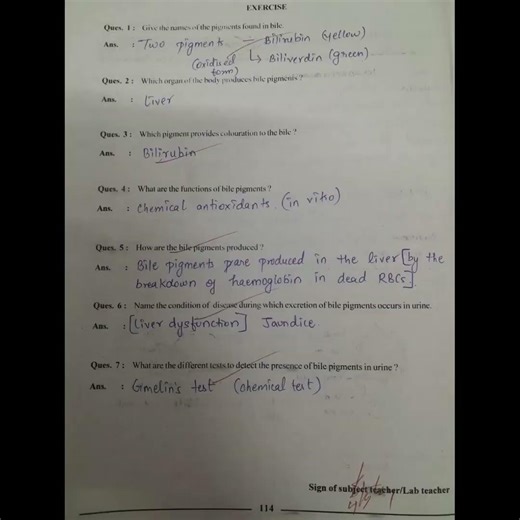 EXERCISE
Ques. 1 : Give the names of the pigments found in bile.
Ans. : Two pigments → Bilirubin (yellow)
(oxidised form) ↳ Biliverdin (green)
Ques. 2 : Which organ of the body produces bile pigments ?
Ans. : Liver
Ques. 3 : Which pigment provides colouration to the bile ?
Ans. : Bilirubin
Ques. 4 : What are the functions of bile pigments ?
Ans. : Chemical antioxidants (in vitro)
Ques. 5 : How are the bile pigments produced ?
Ans. : Bile pigments are produced in the liver [by the
breakdown of haemoglobin in dead RBCs].
Ques. 6 : Name the condition of disease during which excretion of bile pigments occurs in urine.
Ans. : [Liver dysfunction] Jaundice.
Ques. 7 : What are the different tests to detect the presence of bile pigments in urine ?
Ans. : Gmelin's test (chemical test)
Sign of subject teacher/Lab teacher
114